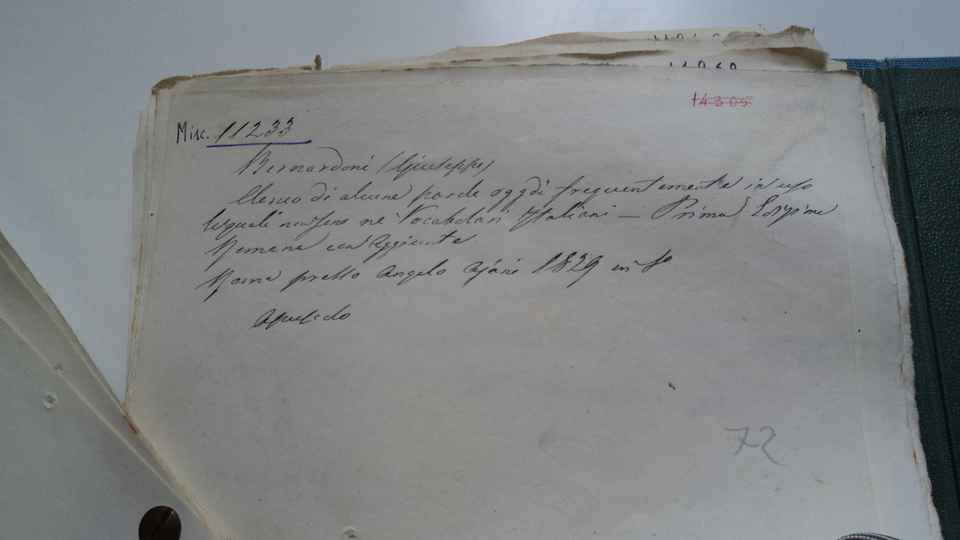 14305
Misc. 11233
Bernardoni (Giuseppe)
Elenco di alcune parole oggidì frequentemente in uso
le quali non sono ne' Vocabolari Italiani — Prima Edizione
Romana con Aggiunte
Roma presso Angelo Ajani 1829 in 8°
72